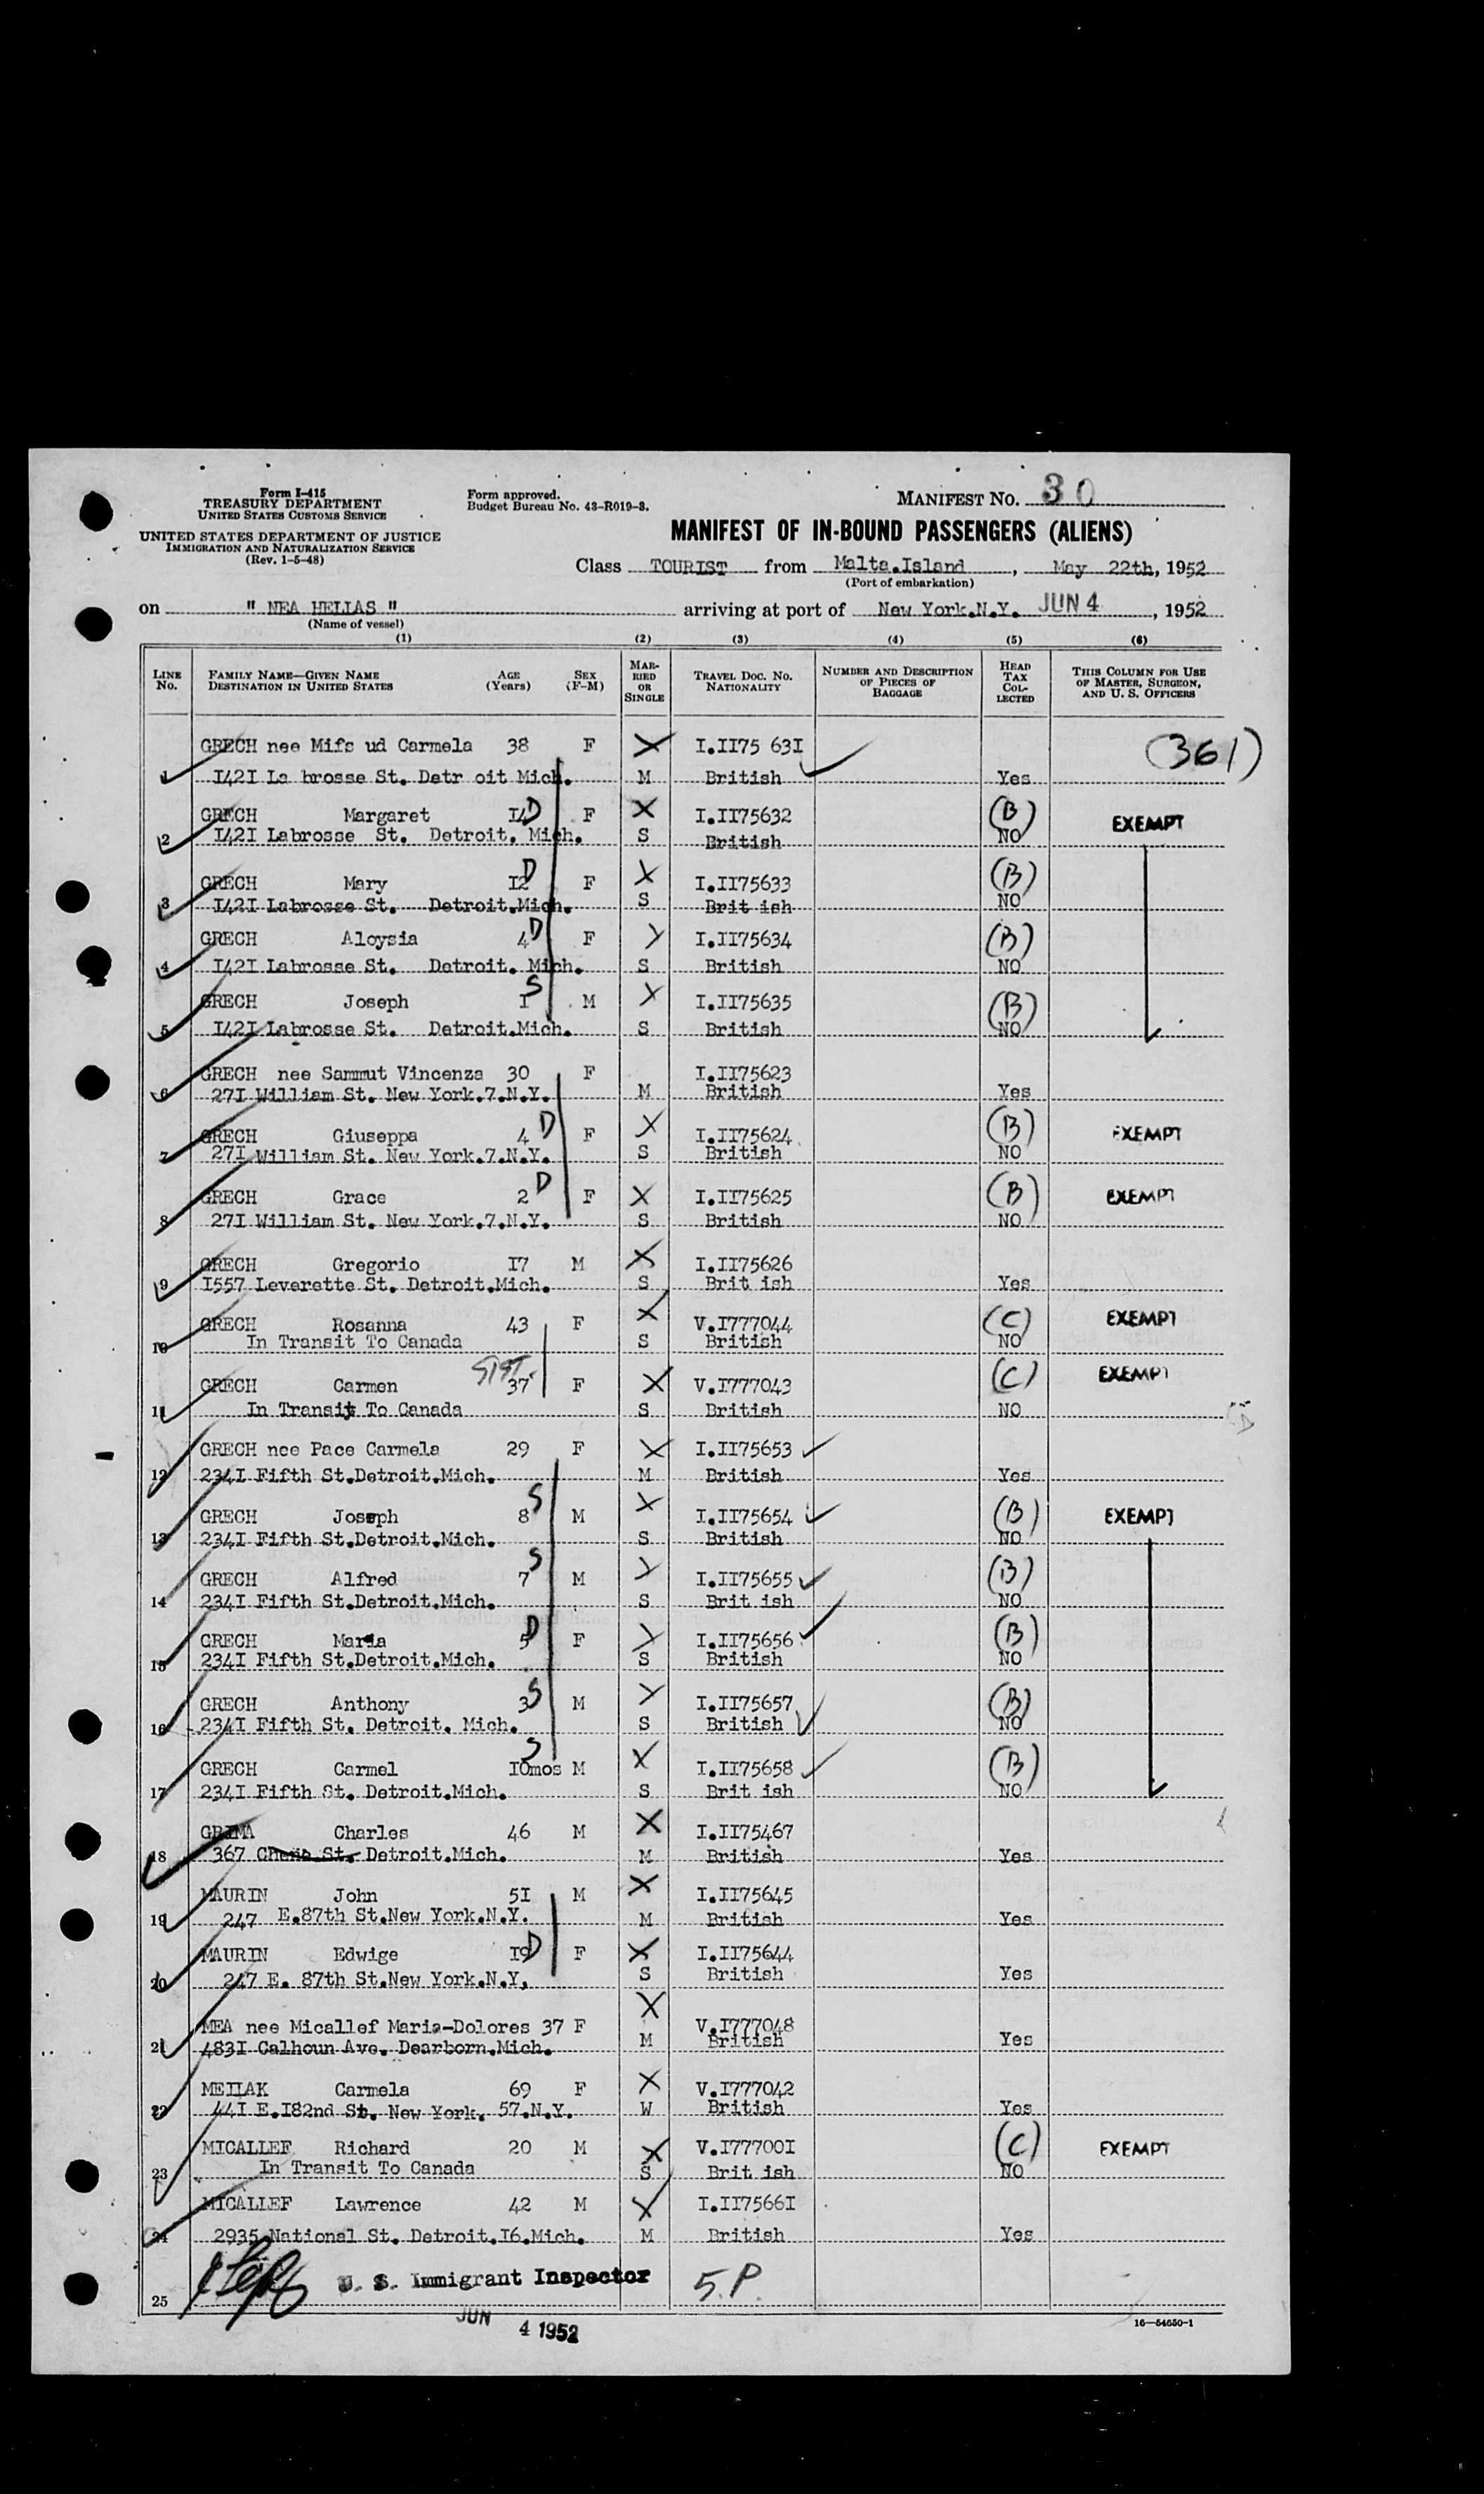 Form I-415
TREASURY DEPARTMENT
UNITED STATES CUSTOMS SERVICE
UNITED STATES DEPARTMENT OF JUSTICE
IMMIGRATION AND NATURALIZATION SERVICE
(Rev. 1-5-48)
Form approved.
Budget Bureau No. 43-R019-3.
MANIFEST NO. 30
MANIFEST OF IN-BOUND PASSENGERS (ALIENS)
Class TOURIST from Malta.Island, May 22th, 1952
(Port of embarkation)
on " NEA HELLAS " arriving at port of New York.N.Y. JUN 4, 1952
(Name of vessel)
(1) (2) (3) (4) (5) (6)
LINE No. FAMILY NAME—GIVEN NAME DESTINATION IN UNITED STATES AGE (Years) SEX (F-M) MARRIED OR SINGLE TRAVEL DOC. NO. NATIONALITY NUMBER AND DESCRIPTION OF PIECES OF BAGGAGE HEAD TAX COLLECTED THIS COLUMN FOR USE OF MASTER, SURGEON, AND U. S. OFFICERS
GRECH nee Mifs ud Carmela 38 F X I.II75 63I (361)
1 I42I La brosse St. Detr oit Mich. M British Yes
GRECH Margaret I4 D F X I.II75632 (B) EXEMPT
2 I42I Labrosse St. Detroit. Mich. S British NO
GRECH Mary I2 D F X I.II75633 (B)
3 I42I Labrosse St. Detroit.Mich. S Brit ish NO
GRECH Aloysia 4 D F X I.II75634 (B)
4 I42I Labrosse St. Detroit. Mich. S British NO
GRECH Joseph I S M X I.II75635 (B)
5 I42I Labrosse St. Detroit.Mich. S British NO
GRECH nee Sammut Vincenza 30 F I.II75623
6 27I William St. New York.7.N.Y. M British Yes
GRECH Giuseppa 4 D F X I.II75624 (B) EXEMPT
7 27I William St. New York.7.N.Y. S British NO
GRECH Grace 2 D F X I.II75625 (B) EXEMPT
8 27I William St. New York.7.N.Y. S British NO
GRECH Gregorio I7 M X I.II75626
9 I557 Leverette St. Detroit.Mich. S Brit ish Yes
GRECH Rosanna 43 F X V.I777044 (C) EXEMPT
10 In Transit To Canada S British NO
GRECH Carmen SIST. 37 F X V.I777043 (C) EXEMPT
11 In Transit To Canada S British NO
GRECH nee Pace Carmela 29 F X I.II75653
12 234I Fifth St.Detroit.Mich. M British Yes
GRECH Joseph 8 S M X I.II75654 (B) EXEMPT
13 234I Fifth St.Detroit.Mich. S British NO
GRECH Alfred 7 S M X I.II75655 (B)
14 234I Fifth St.Detroit.Mich. S Brit ish NO
GRECH Maria 5 D F X I.II75656 (B)
15 234I Fifth St.Detroit.Mich. S British NO
GRECH Anthony 3 S M X I.II75657 (B)
16 234I Fifth St. Detroit. Mich. S British NO
GRECH Carmel I0mos S M X I.II75658 (B)
17 234I Fifth St. Detroit.Mich. S Brit ish NO
GRIMA Charles 46 M X I.II75467
18 367 St. Detroit.Mich. M British Yes
MAURIN John 5I M X I.II75645
19 247 E.87th St.New York.N.Y. M British Yes
MAURIN Edwige I9 D F X I.II75644
20 247 E. 87th St.New York.N.Y. S British Yes
MEA nee Micallef Maria-Dolores 37 F X V.I777048
21 483I Calhoun Ave. Dearborn.Mich. M British Yes
MELLAK Carmela 69 F X V.I777042
22 44I E.I82nd St. New York. 57.N.Y. W British Yes
MICALLEF Richard 20 M X V.I77700I (C) EXEMPT
23 In Transit To Canada S Brit ish NO
MICALLEF Lawrence 42 M X I.II7566I
24 2935 National St. Detroit.I6.Mich. M British Yes
U. S. Immigrant Inspector 5.P.
25
JUN 4 1952
16—54650-1